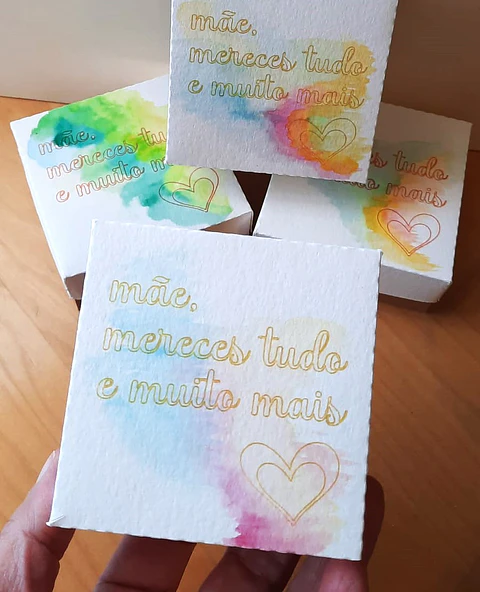 mãe,
mereces tudo
e muito mais
mãe,
mereces tu
e muito m
mereces tudo
to mais
mãe,
mereces tudo
e muito mais